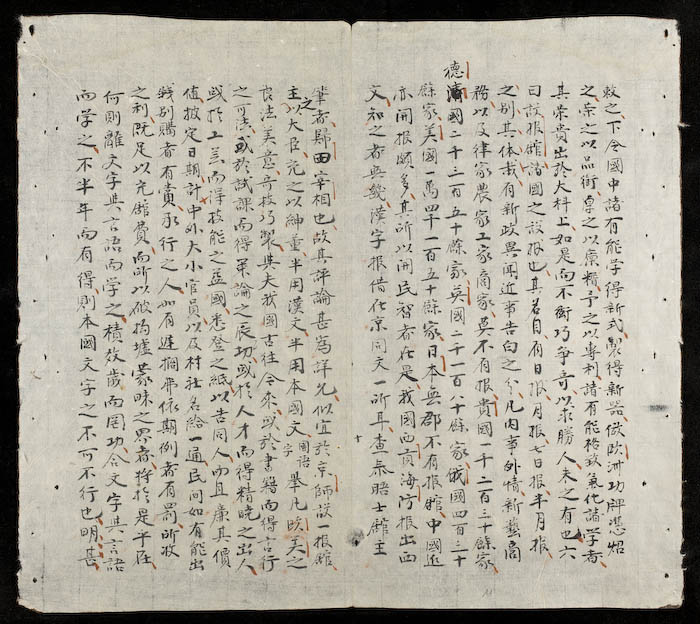 敕之下令國中諸有能学得新式製得新器倣欧洲功牌憑照
之宗之以品銜之以廪糈予之以專利諸有能格致氣化諸学者
其荣貴出於大科上如是而不衒巧争竒以求勝人未之有也六
曰設报舘諸國之設报也其名目有日报月报七日报半月报
之别其体裁有新政異聞近事告白之分凡内事外情新藝商
務以及律家農家工家商家莫不有报貴國一千二百三十餘家
德國二千三百五十餘家英國二千一百八十餘家俄國四百三十
餘家美國一萬四千一百五十餘家日本無郡不有报舘中國近
亦開报頗多其所以開民智者在是我國西貢海防报出西
文知之者無幾漢字报僅在京同文一所耳查泰晤士舘主
筆者歸田宰相也故其評論甚爲詳允似宜於京師設一报舘
主之以大臣充之以紳董半用漢文半用本國文國語字舉凡欧美之
良法美意竒技巧製與夫我國古往今來或於書籍而得言行
之可法或於試課而得策論之切或於人才而得精曉之出人
或於工芸而得技能之益國悉登之紙以告同人而且廉其價
值按定日期計中外大小官員以及村社各給一通民间如有能出
錢别購者有賣承行之人如有遲擱弗依期例者有罰所收
之利既足以充舘費而所以破拘墟蒙昧之界者将於是乎在
何則離文字與言語而学之積数歲而罔功合文字與言語
而学之不半年而有得則本國文字之不可不行也明甚